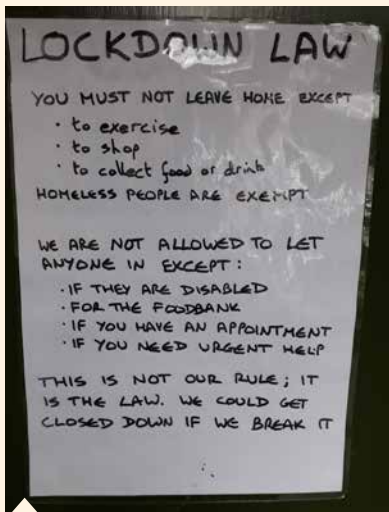 LOCKDOWN LAW
YOU MUST NOT LEAVE HOME EXCEPT
· to exercise
· to shop
· to collect food or drink
HOMELESS PEOPLE ARE EXEMPT
WE ARE NOT ALLOWED TO LET
ANYONE IN EXCEPT:
· IF THEY ARE DISABLED
· FOR THE FOODBANK
· IF YOU HAVE AN APPOINTMENT
· IF YOU NEED URGENT HELP
THIS IS NOT OUR RULE; IT
IS THE LAW. WE COULD GET
CLOSED DOWN IF WE BREAK IT